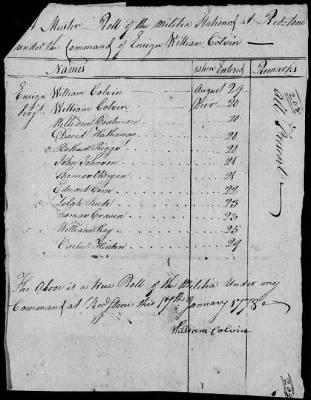 A Muster Roll of the Militia Stationed at Redstone
under the Command of Ensign William Colvin
Names When Entered Remarks
Ensign William Colvin August 29
Serjt William Colvin 20
William 20
David Hathaway 20
Riggs 20
John Johnson 21
Thomas Morgan 21
Edward 22
23
Thomas Craven 23
William Ray 25
Hinton 29
all Present
The Above is a true Roll of the Militia under my
Command at Redstone this 17th January 1778
William Colvin